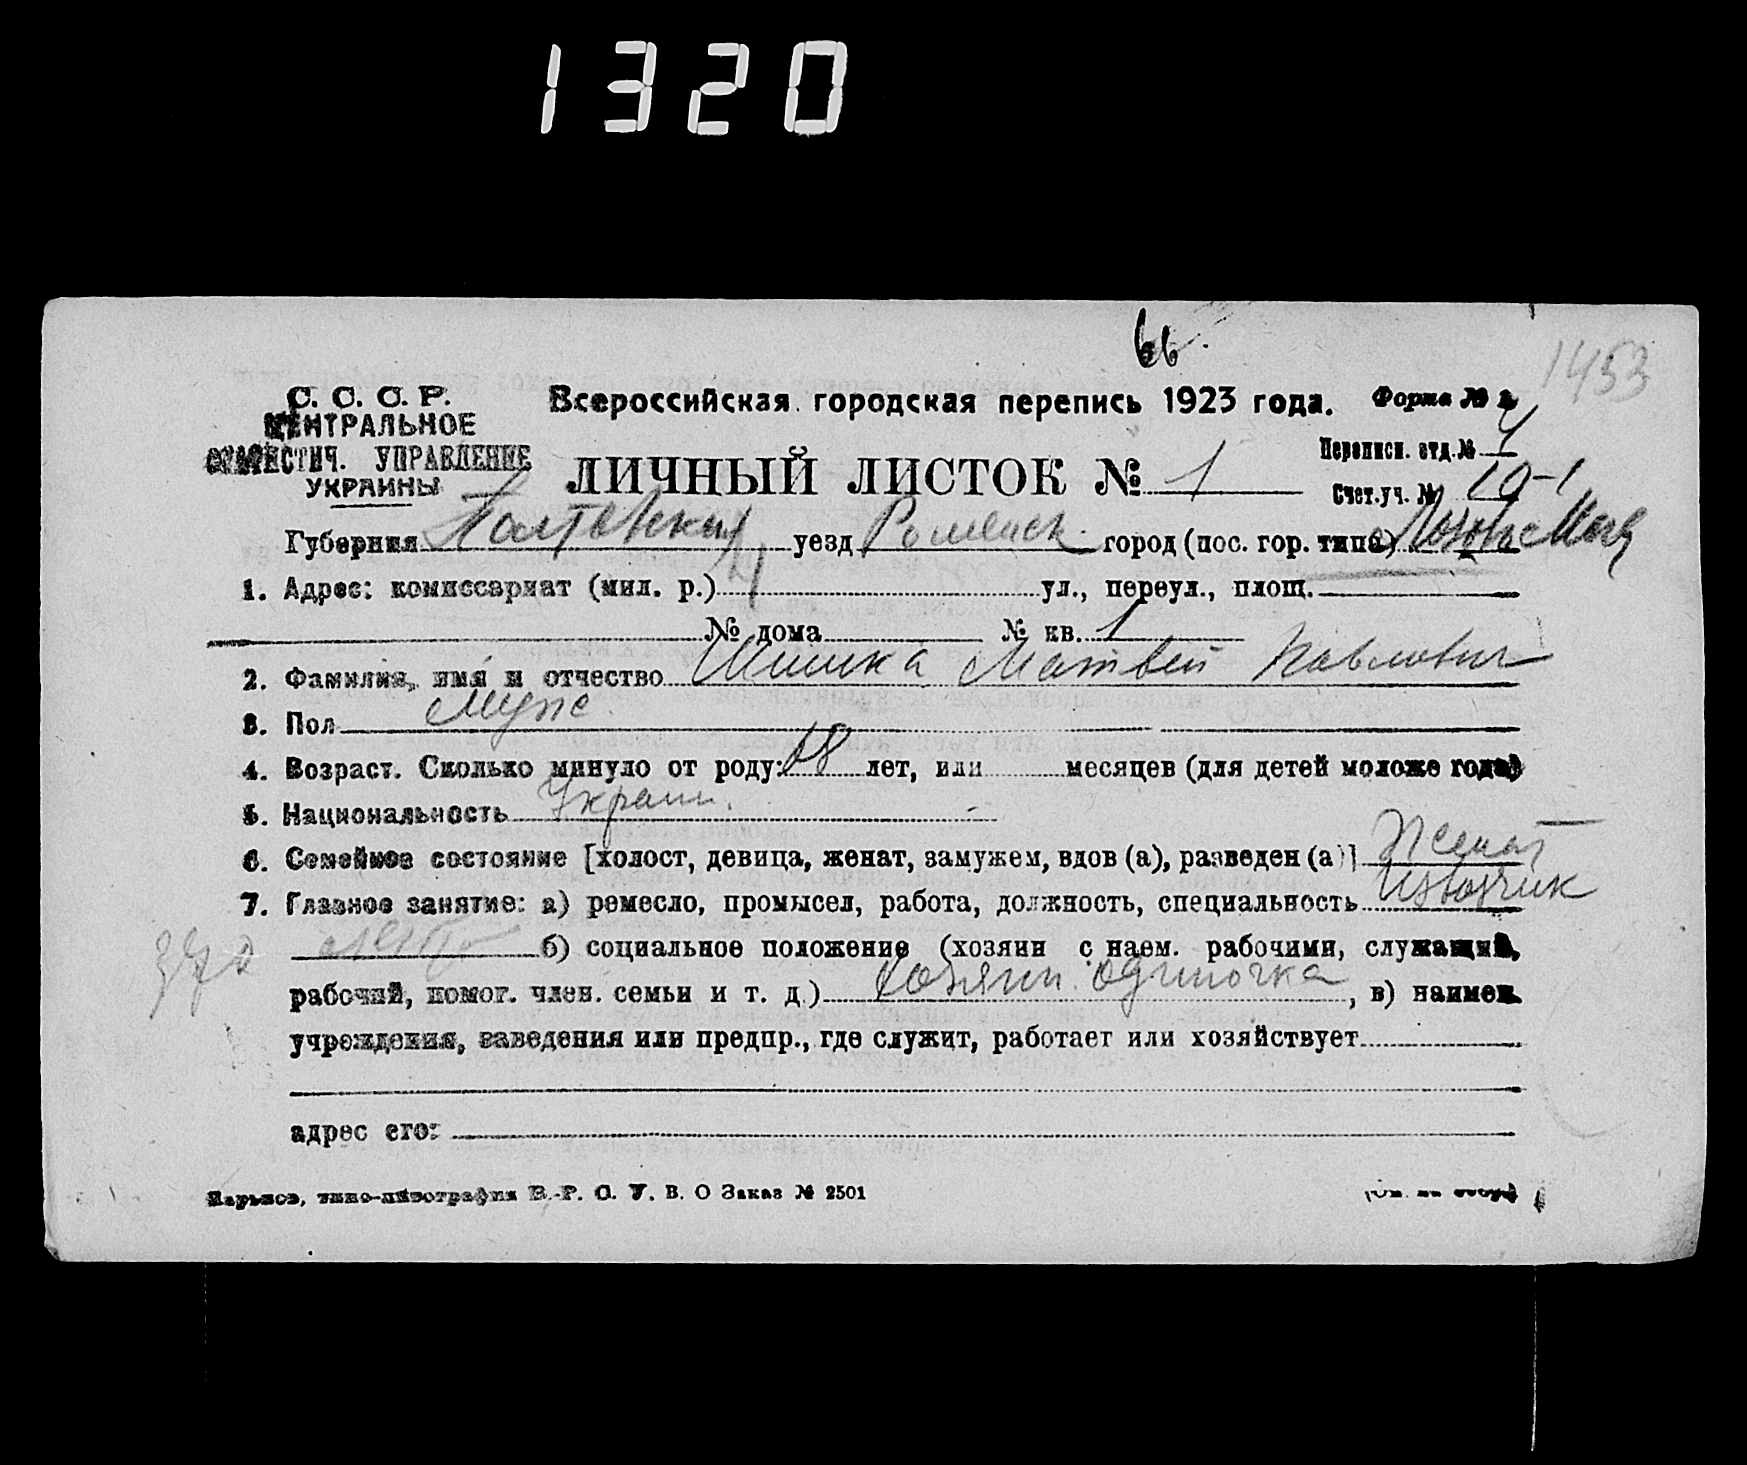 1320
66
1453
С. С. С. Р.
ЦЕНТРАЛЬНОЕ
СТАТИСТИЧ. УПРАВЛЕНИЕ
УКРАИНЫ
Всероссийская городская перепись 1923 года.
Форма № 2
Переписн. отд. № 4
ЛИЧНЫЙ ЛИСТОК № 1
Счет. уч. № 10-1
Губерния Полтавская уезд Роменск. город (пос. гор. типа)
1. Адрес: комиссариат (мил. р.) 4 ул., переул., площ.
№ дома № кв. 1
2. Фамилия, имя и отчество Шишка Матвей Павлович
3. Пол Муж
4. Возраст. Сколько минуло от роду: 68 лет, или месяцев (для детей моложе года)
5. Национальность Украин.
6. Семейное состояние [холост, девица, женат, замужем, вдов (а), разведен (а)] Женат
7. Главное занятие: а) ремесло, промысел, работа, должность, специальность Извозчик
б) социальное положение (хозяин с наем. рабочими, служащий,
рабочий, помог. член. семьи и т. д.) хозяин одиночка, в) наимен.
учреждения, заведения или предпр., где служит, работает или хозяйствует
адрес его:
Харьков, типо-литография В.-Р. С. У. В. О Заказ № 2501